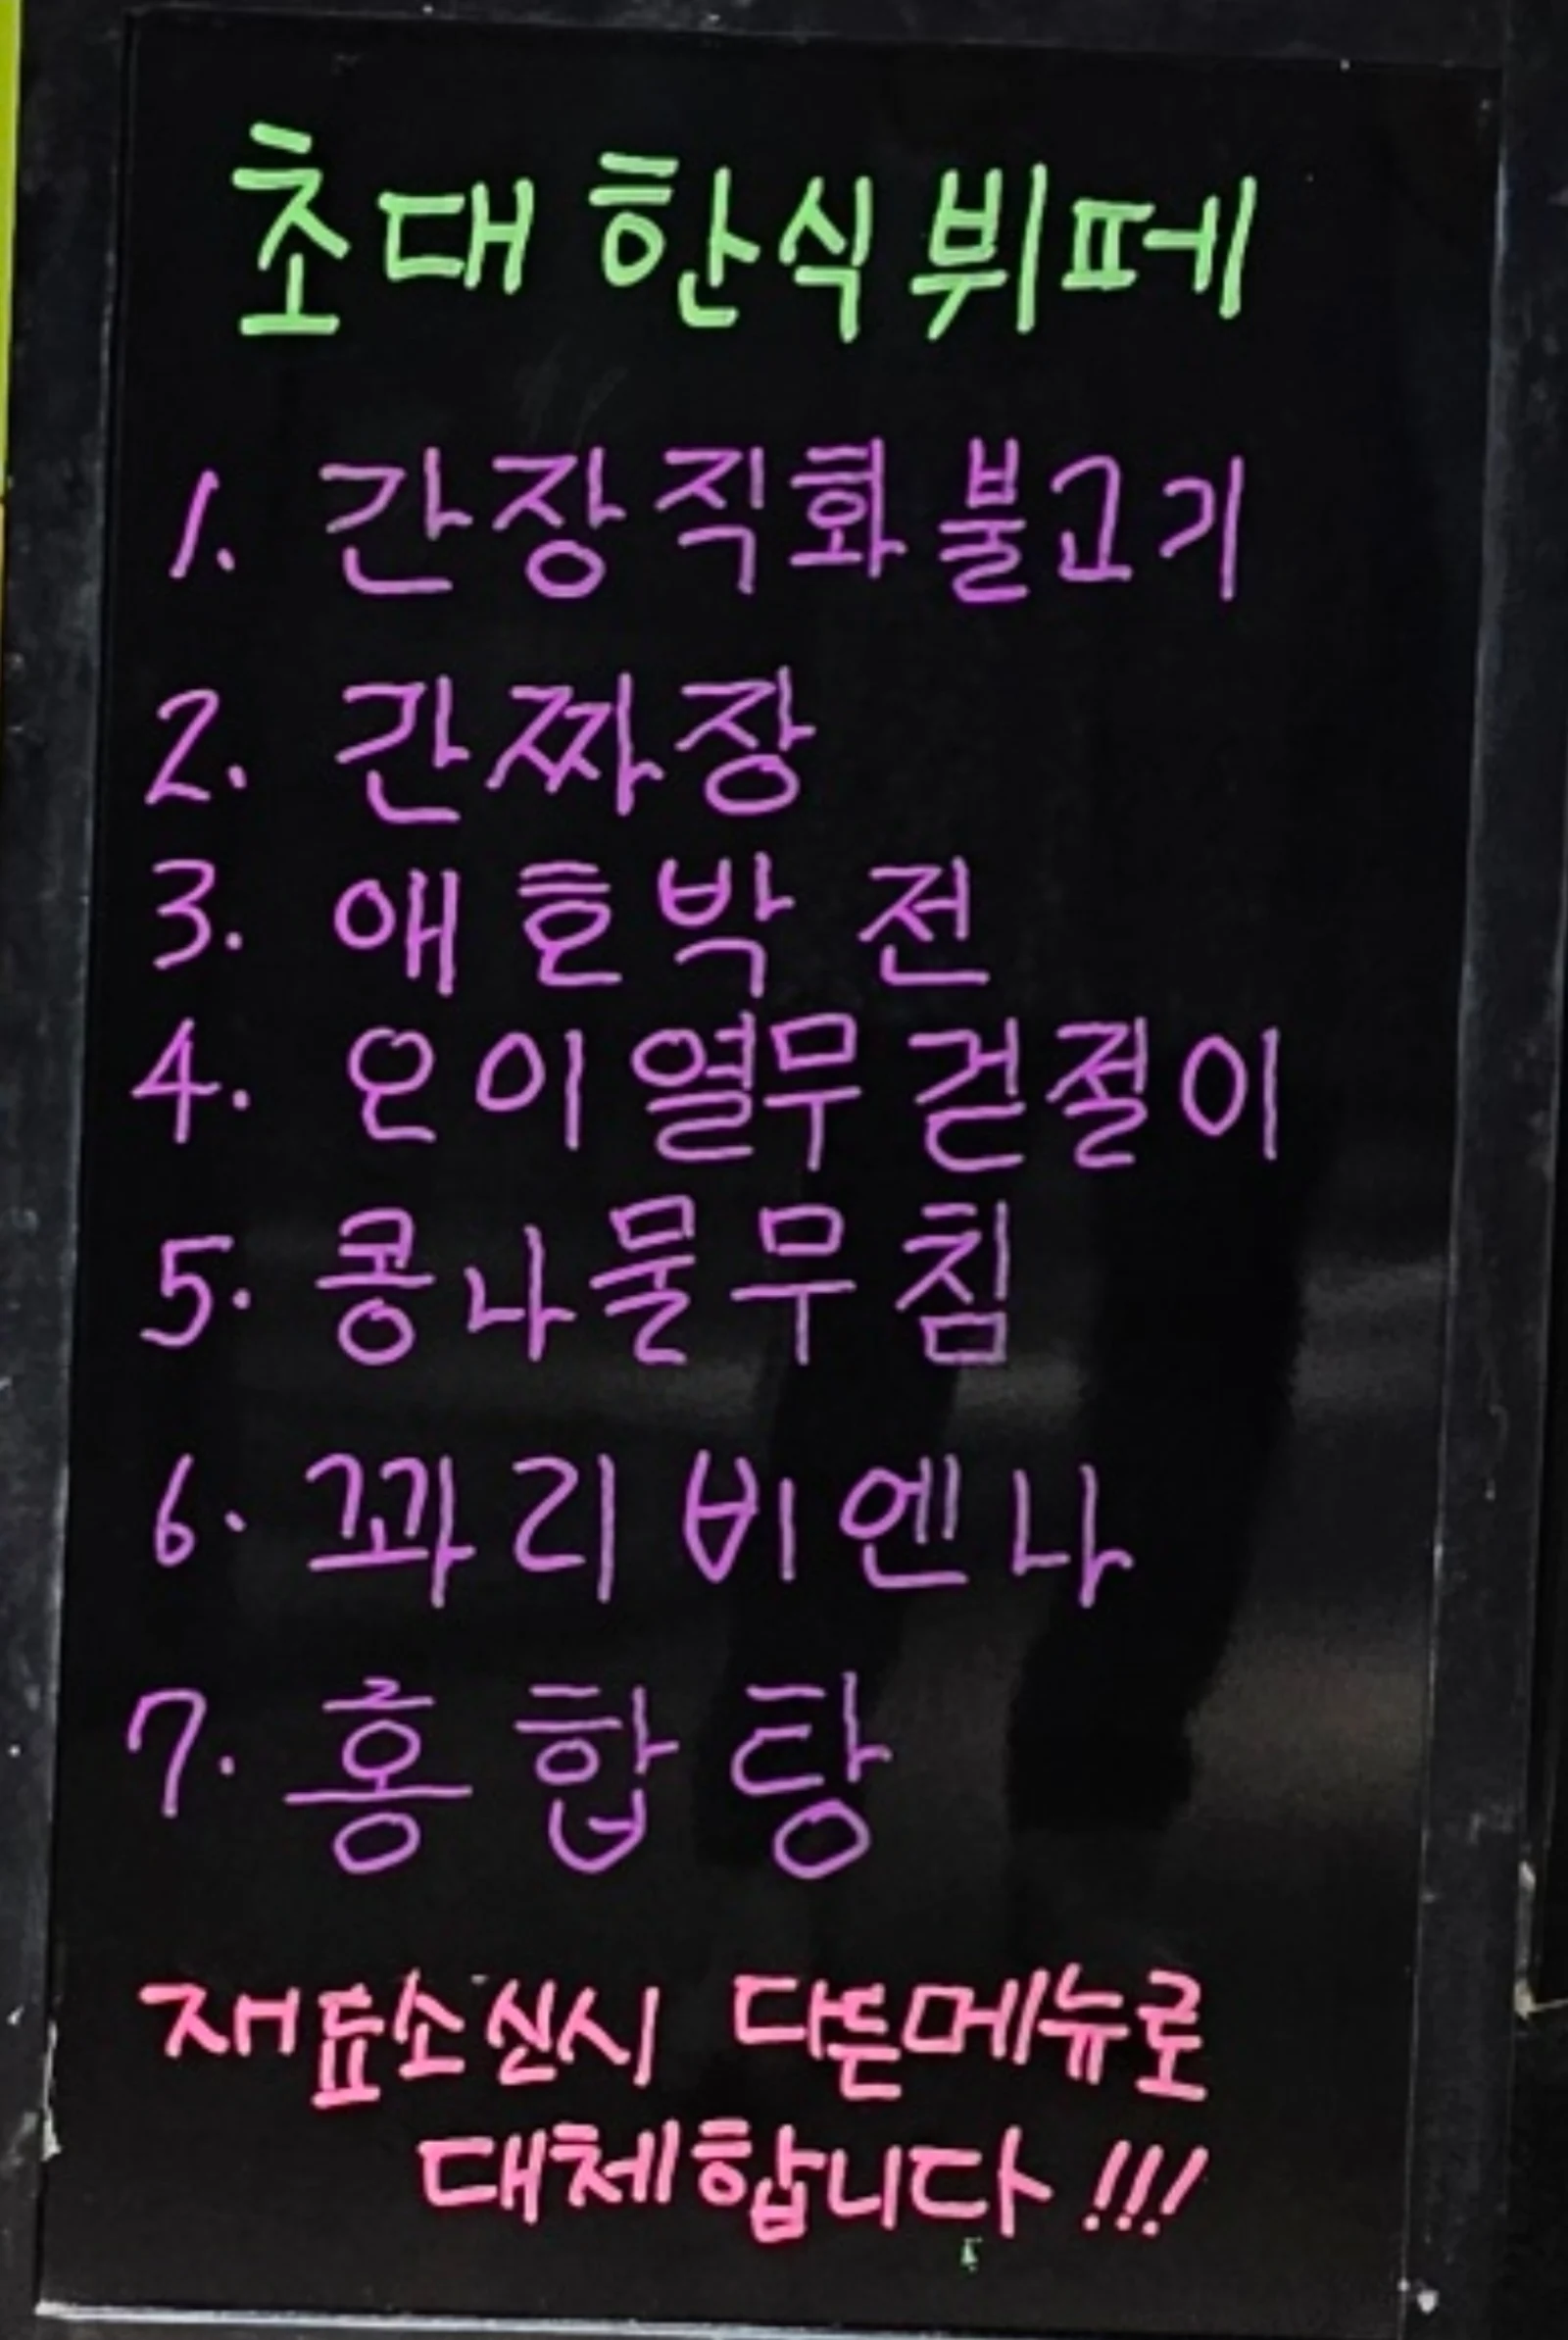 초대한식뷔페
1. 간장직화불고기
2. 간짜장
3. 애호박 전
4. 오이열무 겉절이
5. 콩나물무침
6. 꽈리비엔나
7. 홍합탕
재료소진시 다른메뉴로
대체합니다!!!